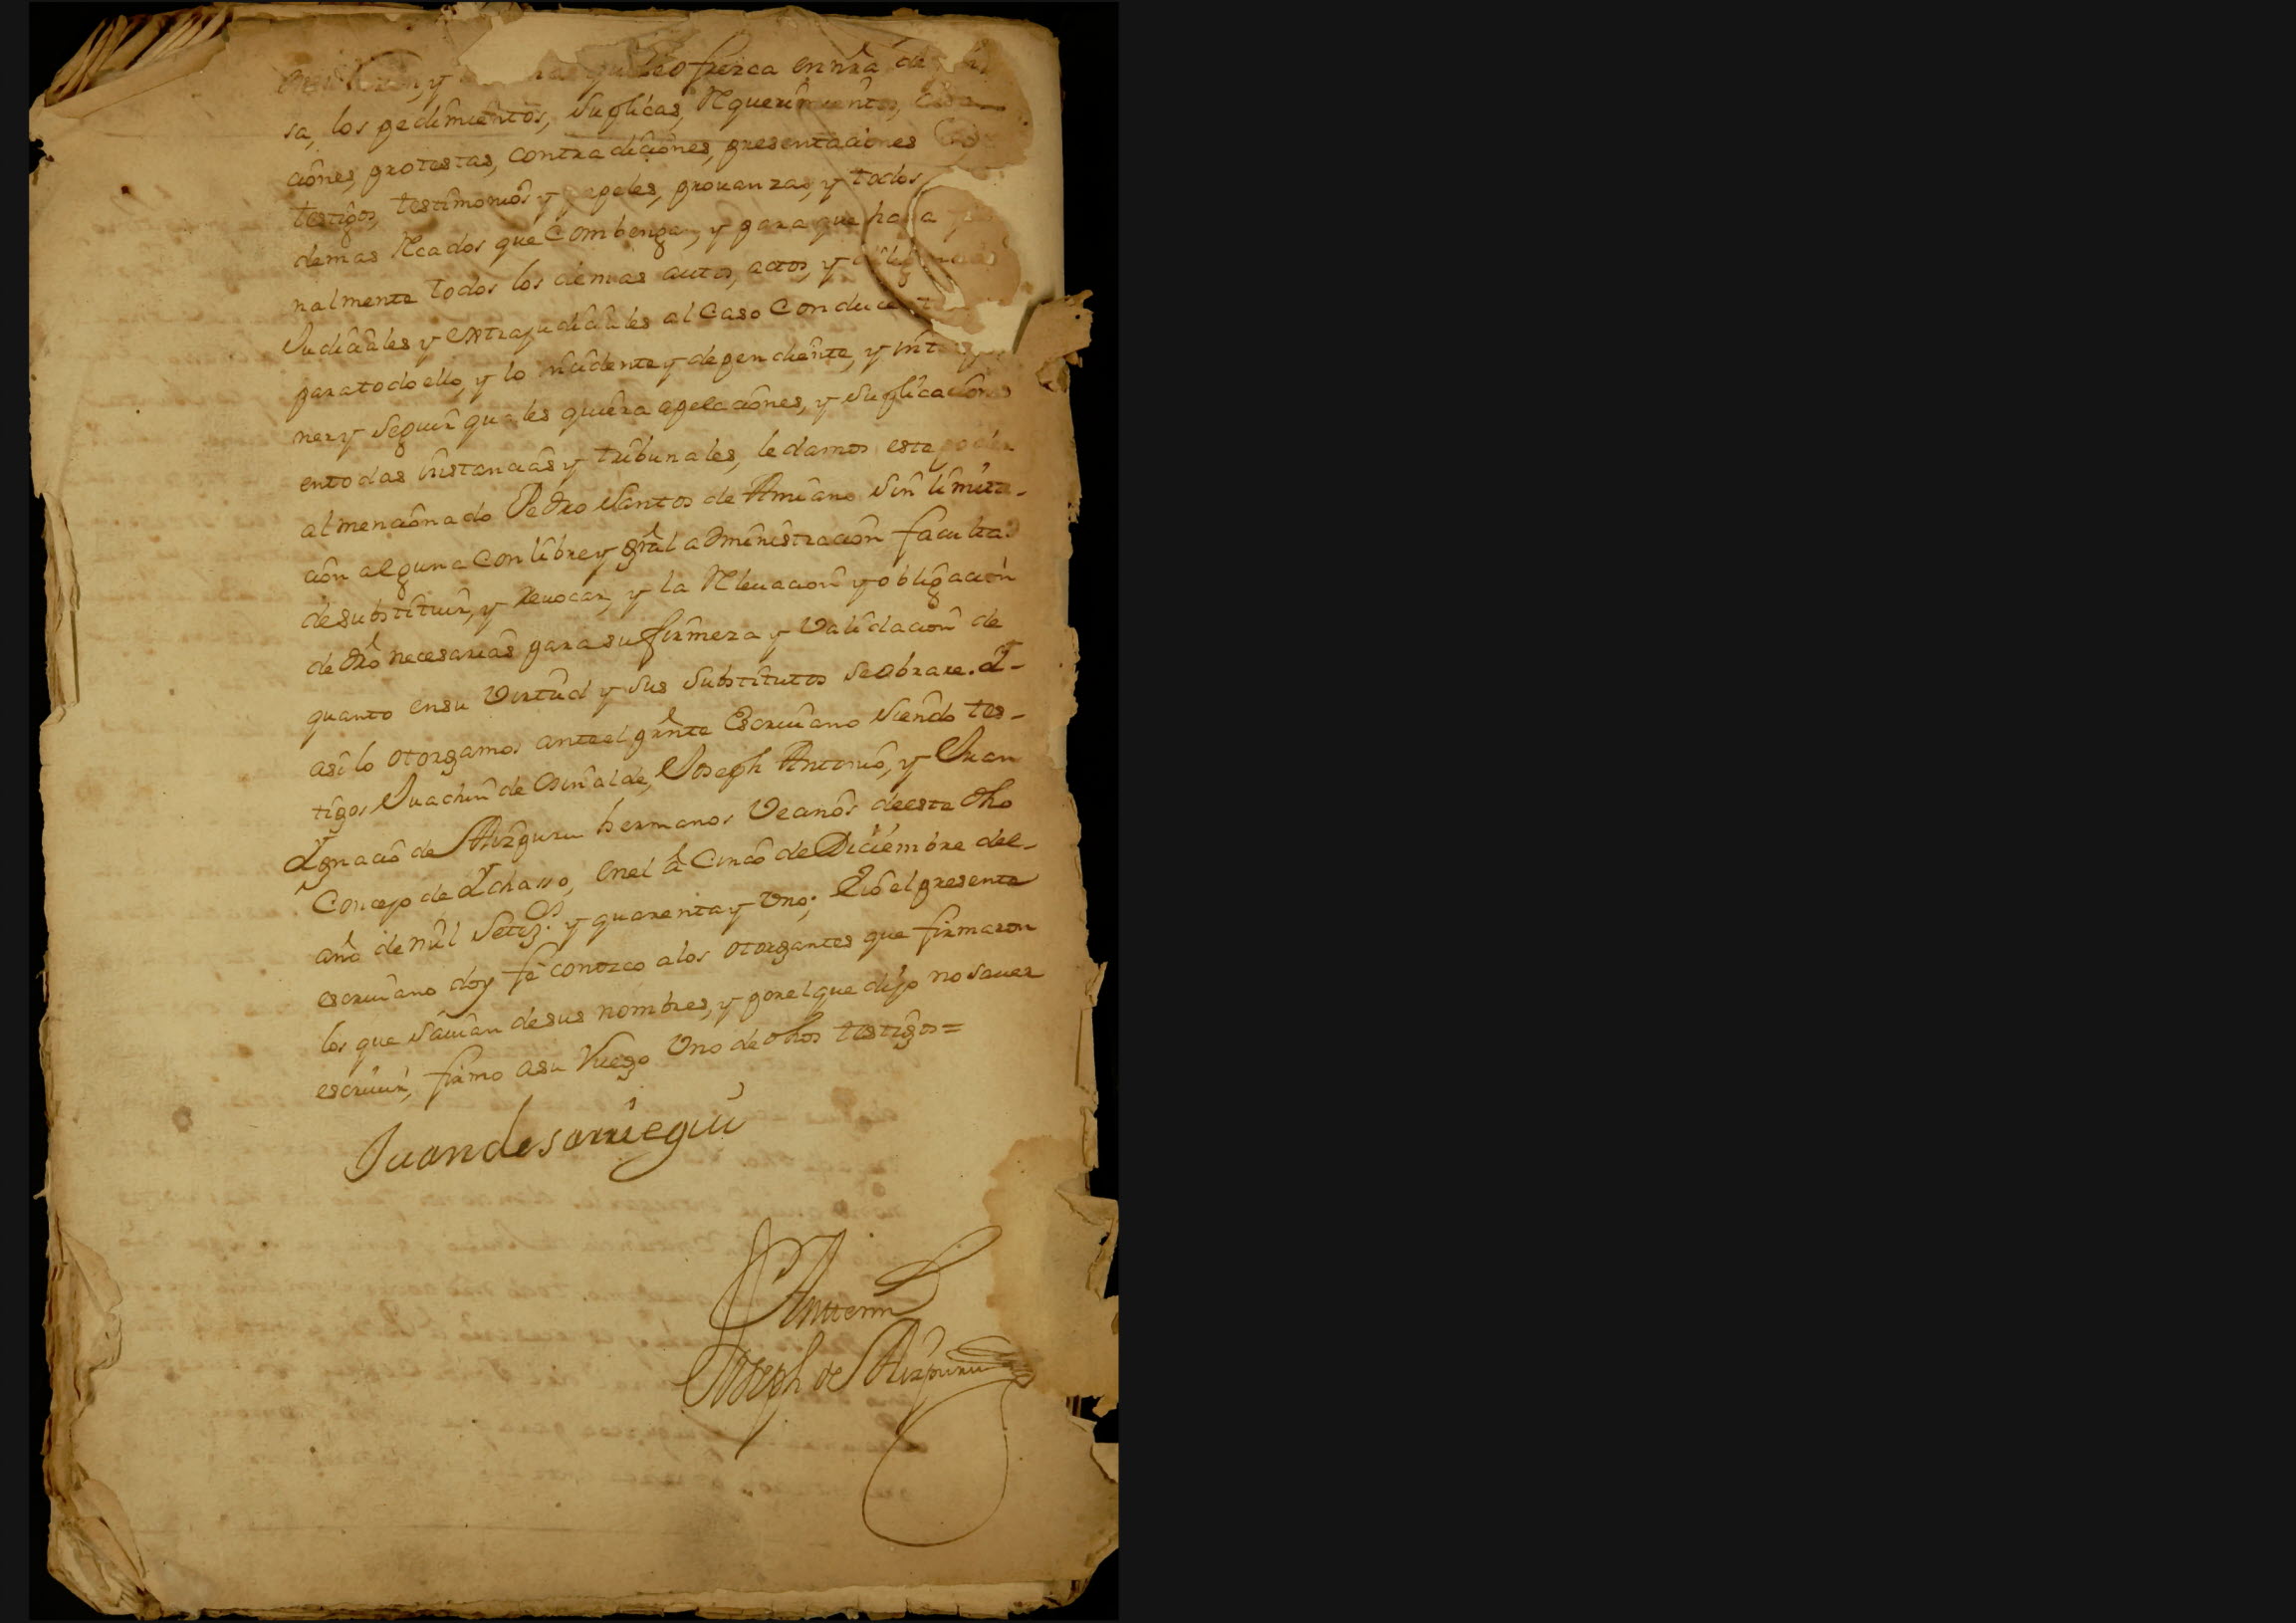 y que se ofrezca en nrâ de
sa, los pedimientos, suplicas, Requerimientos,
ciones, protestas, contradiciones, presentaciones
testigos, testimonios y papeles, prouanzas, y todos
demas Rcados que Combengan, y para que haga
nalmente todos los demas autos, actos, y
Judiciales y extrajudiciales al Caso Conducent
para todo ello, y lo incidente y dependiente, y
ner y seguir quales quiera apelaciones, y suplicaciones
en todas instancias y tribunales, le damos este poder
al mencionado Pedro Santos de Amiano sin limita-
ción alguna con libre y gral administracion facultad
de substituir, y reuocar, y la Releuacion y obligacion
de dro necesarias para su firmeza y Validacion de
quanto en su Virtud y sus substitutos se obrare. Y-
asi lo otorgamos ante el prnte Escriuano siendo tes-
tigos Juachin de Osinalde, Joseph Antonio, y Juan
Ygnacio de Aizpuru hermanos Vecinos de este dho
Concejo de Ychasso, en el â Cinco de Diciembre del-
año de mil Setezos y quarenta y Uno; E io el presente
escriuano doy fe conozco a los otorgantes que firmaron
los que sauian de sus nombres, y por el que dijo no sauer
escriuir, firmo a su Ruego Uno de dhos testigos =
Juan de sarriegui
Ante mi
Joseph de Aizpuru